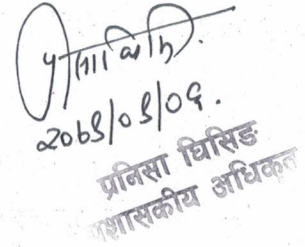 २०७९/०९/०६.
प्रनिसा घिसिङ
प्रशासकीय अधिकृत